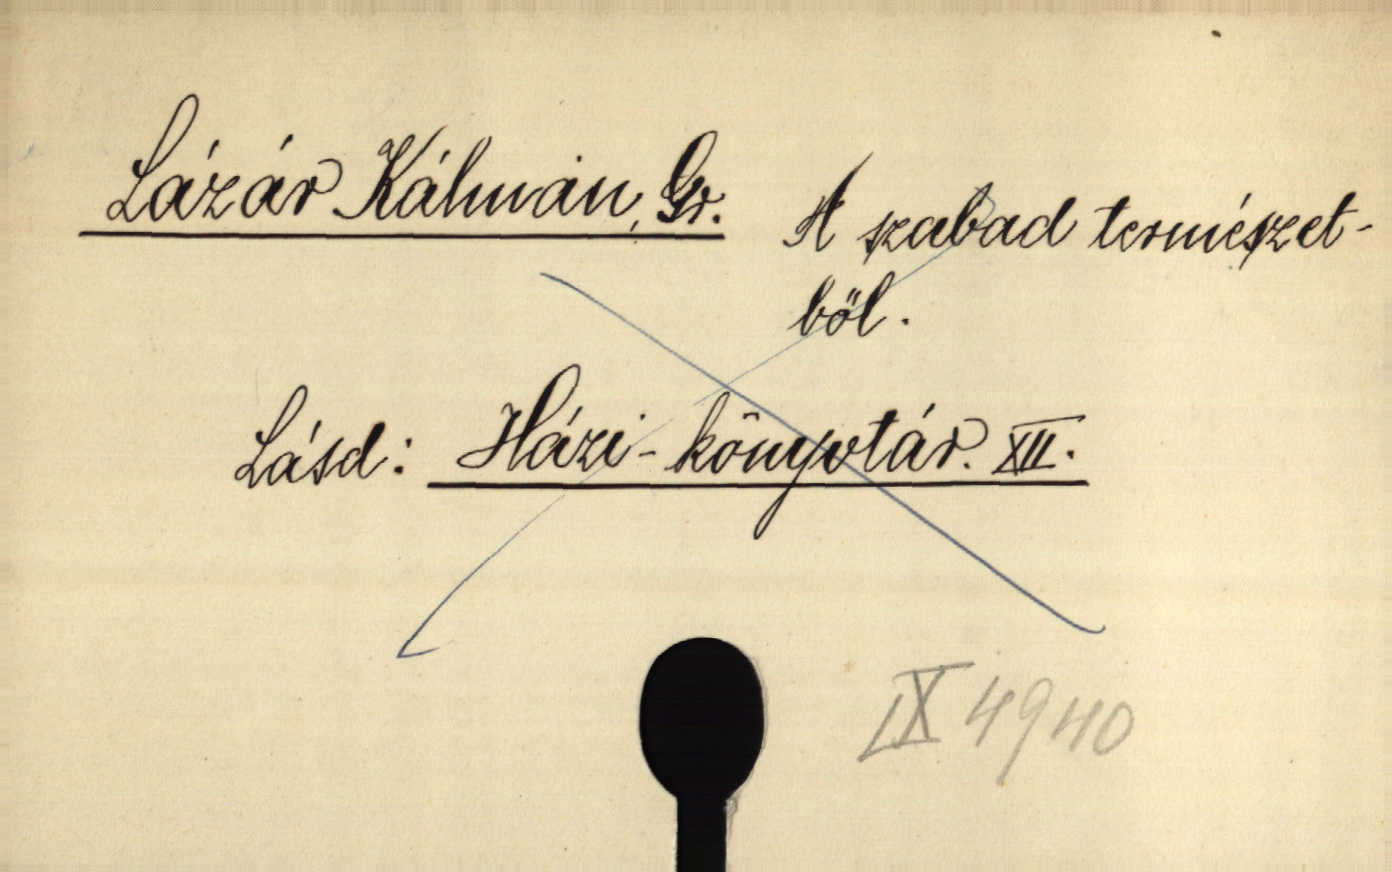 Lázár Kálmán, Gr. A szabad természet-
ből.
Lásd: Házi-könyvtár. XII.
IX 4940